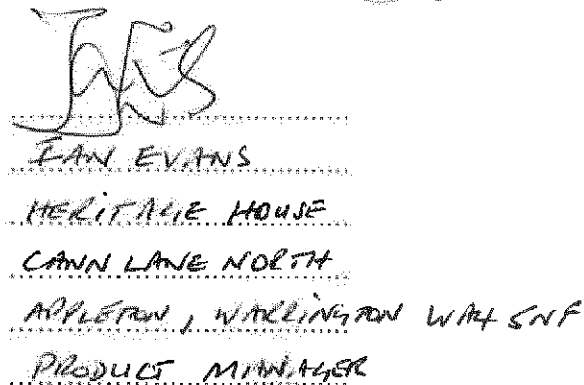 IAN EVANS
HERITAGE HOUSE
CANN LANE NORTH
APPLETON, WARRINGTON WA4 5NF
PRODUCT MANAGER